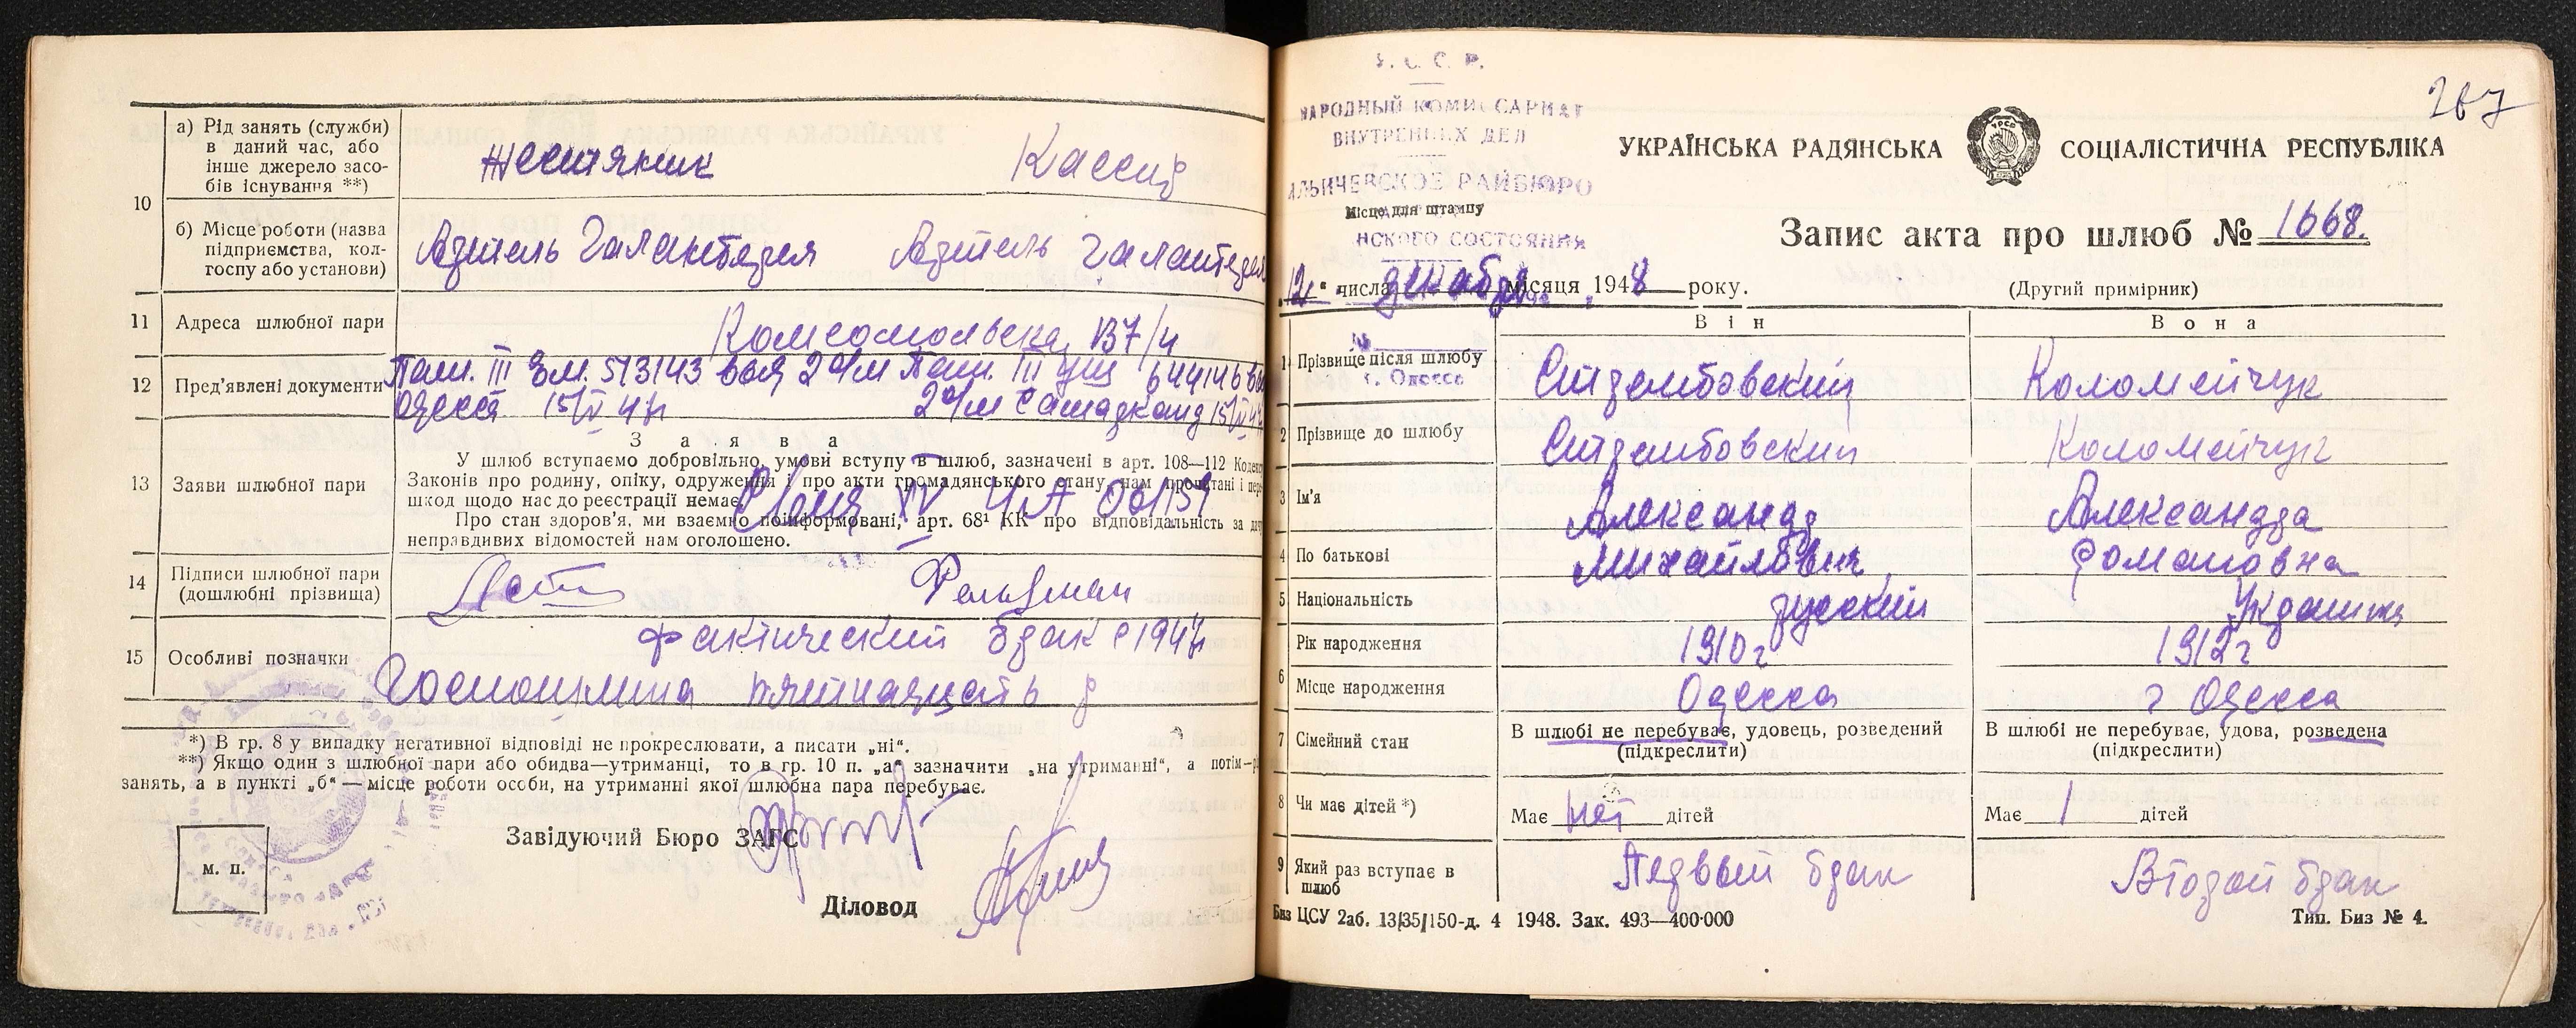 а) Рід занять (служби)
в даний час, або
інше джерело засо-
бів існування **)
Жестяник
Кассир
10
б) Місце роботи (назва
підприємства, кол-
госпу або установи)
Артель Галантерея
Артель Галантерея
11
Адреса шлюбної пари
Комсомольска
12
Пред'явлені документи
Пасп. III
513143
Пасп. III
644146
Одесса
13
Заяви шлюбної пари
З а я в а
У шлюб вступаємо добровільно, умови вступу в шлюб, зазначені в арт. 108—112
Законів про родину, опіку, одруження і про акти громадянського стану, нам прочитані і
шкод щодо нас до реєстрації немає.
Про стан здоров'я, ми взаємно поінформовані, арт. 68¹ КК про відповідальність за
неправдивих відомостей нам оголошено.
14
Підписи шлюбної пари
(дошлюбні прізвища)
15
Особливі позначки
фактический брак с 194
Госпошлина пятнадцать р
*) В гр. 8 у випадку негативної відповіді не прокреслювати, а писати „ні“.
**) Якщо один з шлюбної пари або обидва—утриманці, то в гр. 10 п. „а“ зазначити „на утриманні“, а потім—
занять, а в пункті „б“—місце роботи особи, на утриманні якої шлюбна пара перебуває.
Завідуючий Бюро ЗАГС
м. п.
Діловод
У. С. С. Р.
НАРОДНЫЙ КОМИССАРИАТ
ВНУТРЕННИХ ДЕЛ
ИЛЬИЧЕВСКОЕ РАЙБЮРО
Місце для штампу
НСКОГО СОСТОЯНИЯ
г. Одесса
267
УКРАЇНСЬКА РАДЯНСЬКА СОЦІАЛІСТИЧНА РЕСПУБЛІКА
Запис акта про шлюб № 1668.
„12“ числа декабря місяця 1948 року.
(Другий примірник)
Він
Вона
1
Прізвище після шлюбу
Коломейчук
2
Прізвище до шлюбу
Коломейчук
3
Ім'я
Александр
Александра
4
По батькові
Михайлович
Романовна
5
Національність
русский
Украинка
6
Рік народження
1910 г
1912 г
Місце народження
Одесса
г Одесса
7
Сімейний стан
В шлюбі не перебуває, удовець, розведений
(підкреслити)
В шлюбі не перебуває, удова, розведена
(підкреслити)
8
Чи має дітей *)
Має нет дітей
Має 1 дітей
9
Який раз вступає в
шлюб
Первый брак
Второй брак
Биз ЦСУ 2аб. 13/35/150-д. 4 1948. Зак. 493—400·000
Тип. Биз № 4.